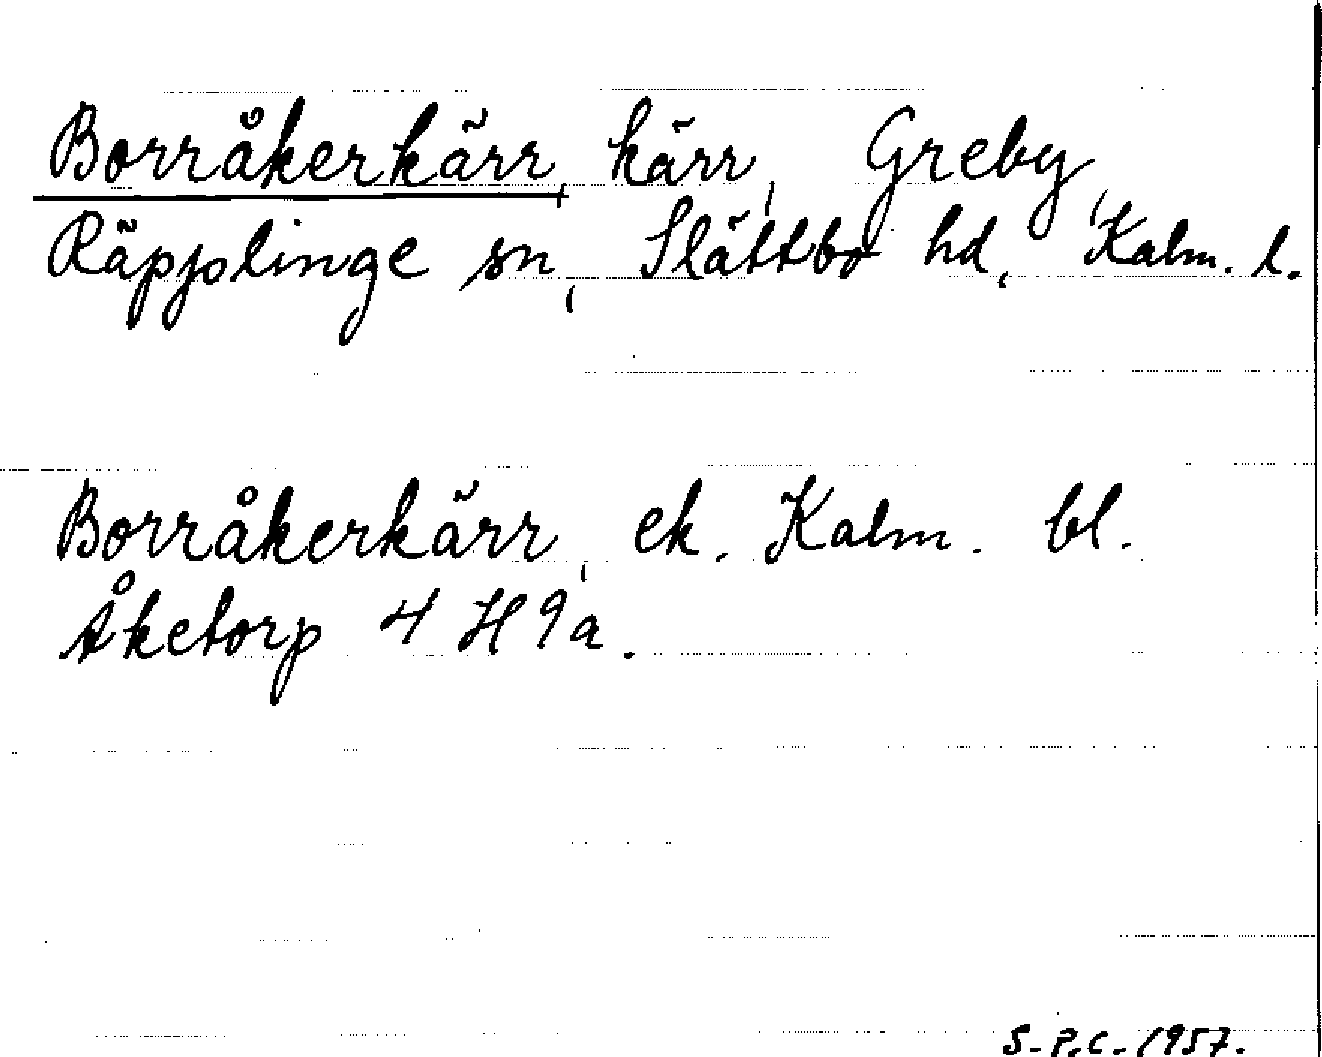 Borråkerkärr, kärr, Greby,
Räpplinge sn, Slättbo hd, Kalm. l.
Borråkerkärr, ek. Kalm. bl.
Åketorp 4 H 9a.
S-P.C. 1957.